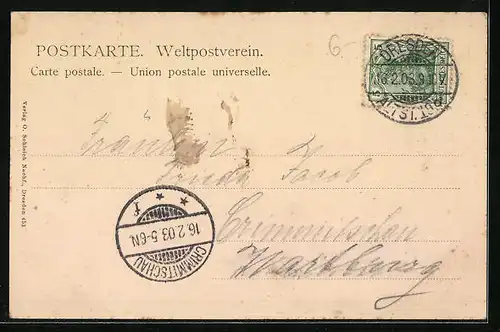 6.-
POSTKARTE. Weltpostverein.
Carte postale. — Union postale universelle.
DRESDEN
16.2.03.9
ALTST.
Fräulein
Frieda Jacob
Crimmitschau
Wartburg
16.2.03 5-6N.
CRIMMITSCHAU
Verlag O. Schleich Nachf., Dresden 453